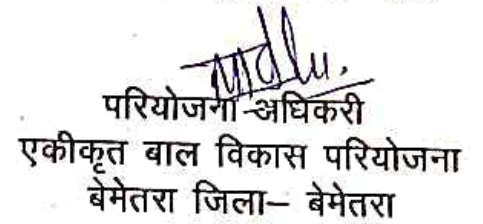 परियोजना अधिकरी
एकीकृत बाल विकास परियोजना
बेमेतरा जिला– बेमेतरा